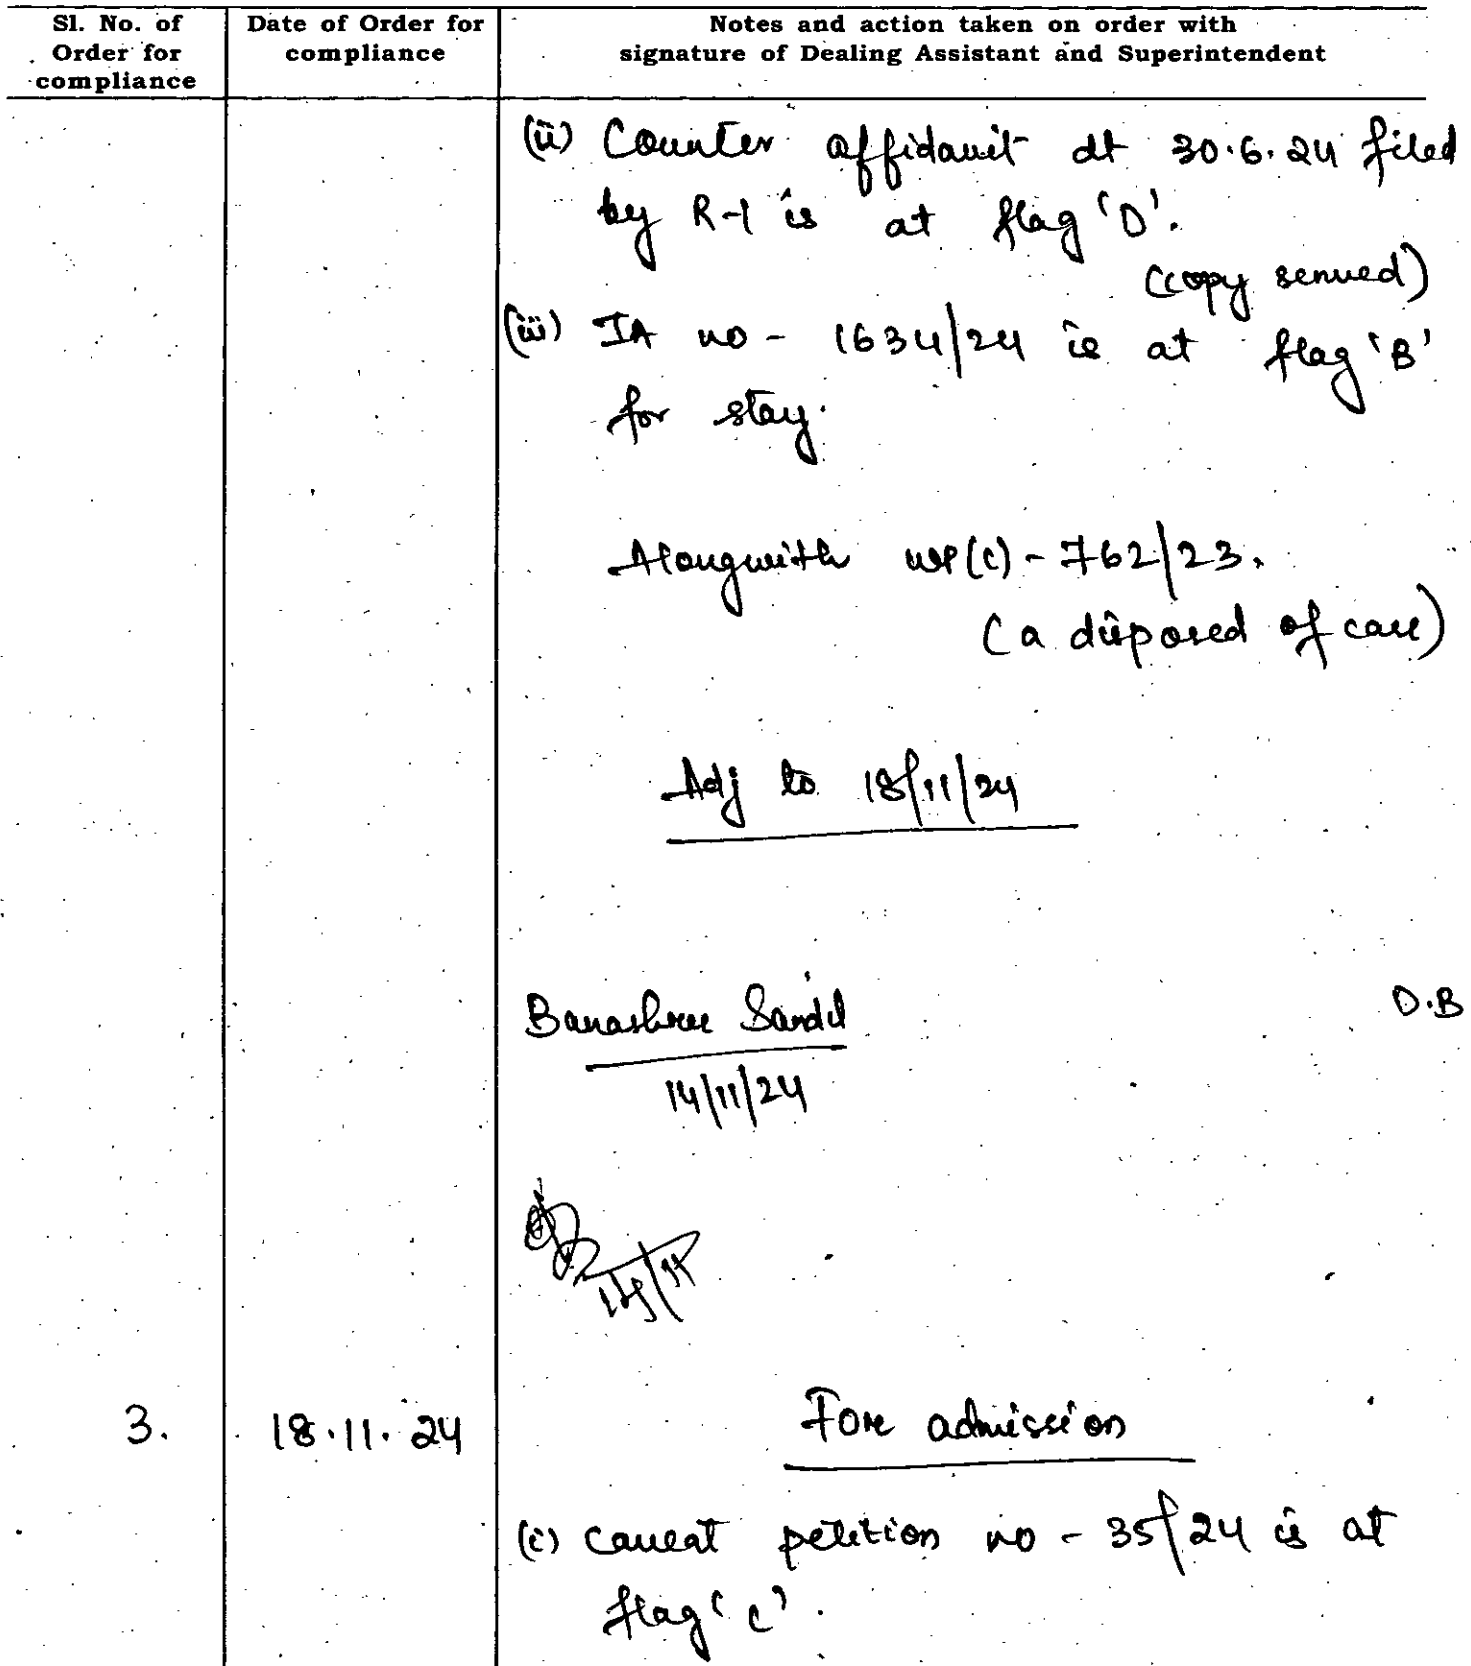 Sl. No. of
Order for
compliance
Date of Order for
compliance
Notes and action taken on order with
signature of Dealing Assistant and Superintendent
(ii) Counter affidavit dt 30.6.24 filed
by R-1 is at flag 'D'.
(copy served)
(iii) IA no - 1634/24 is at flag 'B'
for stay.
Alongwith WP(C) - 762/23.
(a disposed of case)
Adj to 18/11/24
Banashree Sandil
D.B
14/11/24
3.
18.11.24
For admission
(i) Caveat petition no - 35/24 is at
flag 'C'.